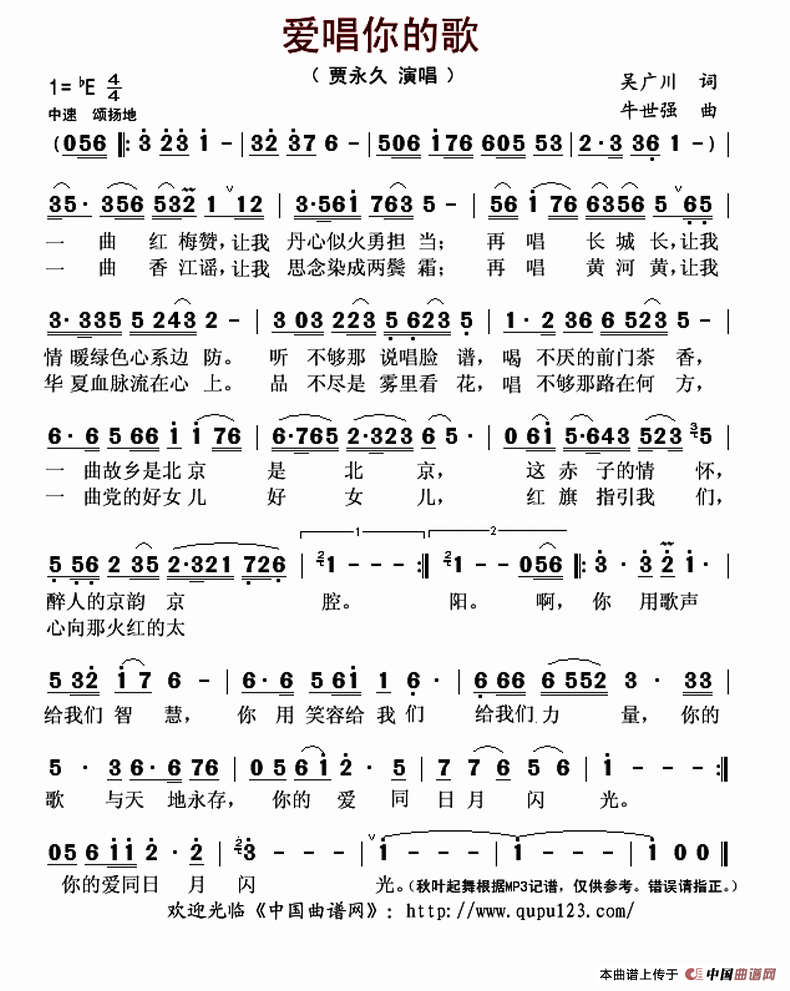 爱唱你的歌
（ 贾永久 演唱 ）
1= ♭E 4/4
吴广川 词
中速 颂扬地
牛世强 曲
(056 ‖: 3 23 1 - | 32 37 6 - | 506 176 605 53 | 2·3 36 1 - ) |
35· 356 532 1 12 | 3·561 763 5 - | 56 1 76 6356 5 65 |
一 曲 红 梅赞，让我 丹心似火勇担 当； 再 唱 长 城 长，让我
一 曲 香 江谣，让我 思念染成两鬓 霜； 再 唱 黄 河 黄，让我
3·335 5 243 2 - | 3 03 223 5 623 5 | 1·2 36 6 523 5 - |
情 暖绿色心系边 防。 听 不够那 说唱脸 谱，喝 不厌的前门茶 香，
华 夏血脉流在心 上。 品 不尽是 雾里看 花，唱 不够那路在何 方，
6·6 5 66 1 1 76 | 6·765 2·323 6 5· | 0 61 5·643 523 3/5 5 |
一 曲故乡是北 京 是 北 京， 这 赤 子的情 怀，
一 曲党的好女 儿 好 女 儿， 红 旗 指引我 们，
1 2
5 56 2 35 2·321 726 | 2/1 - - :‖ 2/1 - - 056 ‖: 3·3 2 1· |
醉人的京韵 京 腔。 阳。 啊， 你 用歌声
心向那火红的太
5 32 1 7 6 - | 6·6 5 61 1 6· | 6 66 6 552 3· 33 |
给我们 智 慧， 你 用 笑容给 我 们 给我们 力 量，你的
5 · 3 6·6 76 | 05 61 2· 5 | 7 76 56 | 1 - - :‖
歌 与天 地永存， 你的 爱 同 日月 闪 光。
05 6 11 2·2 | 2/3 - - | 1 - - - | 1 - - - | 1 0 0 ‖
你的爱同日 月 闪 光。（秋叶起舞根据MP3记谱，仅供参考。错误请指正。）
欢迎光临《中国曲谱网》：http://www.qupu123.com/
本曲谱上传于 中国曲谱网